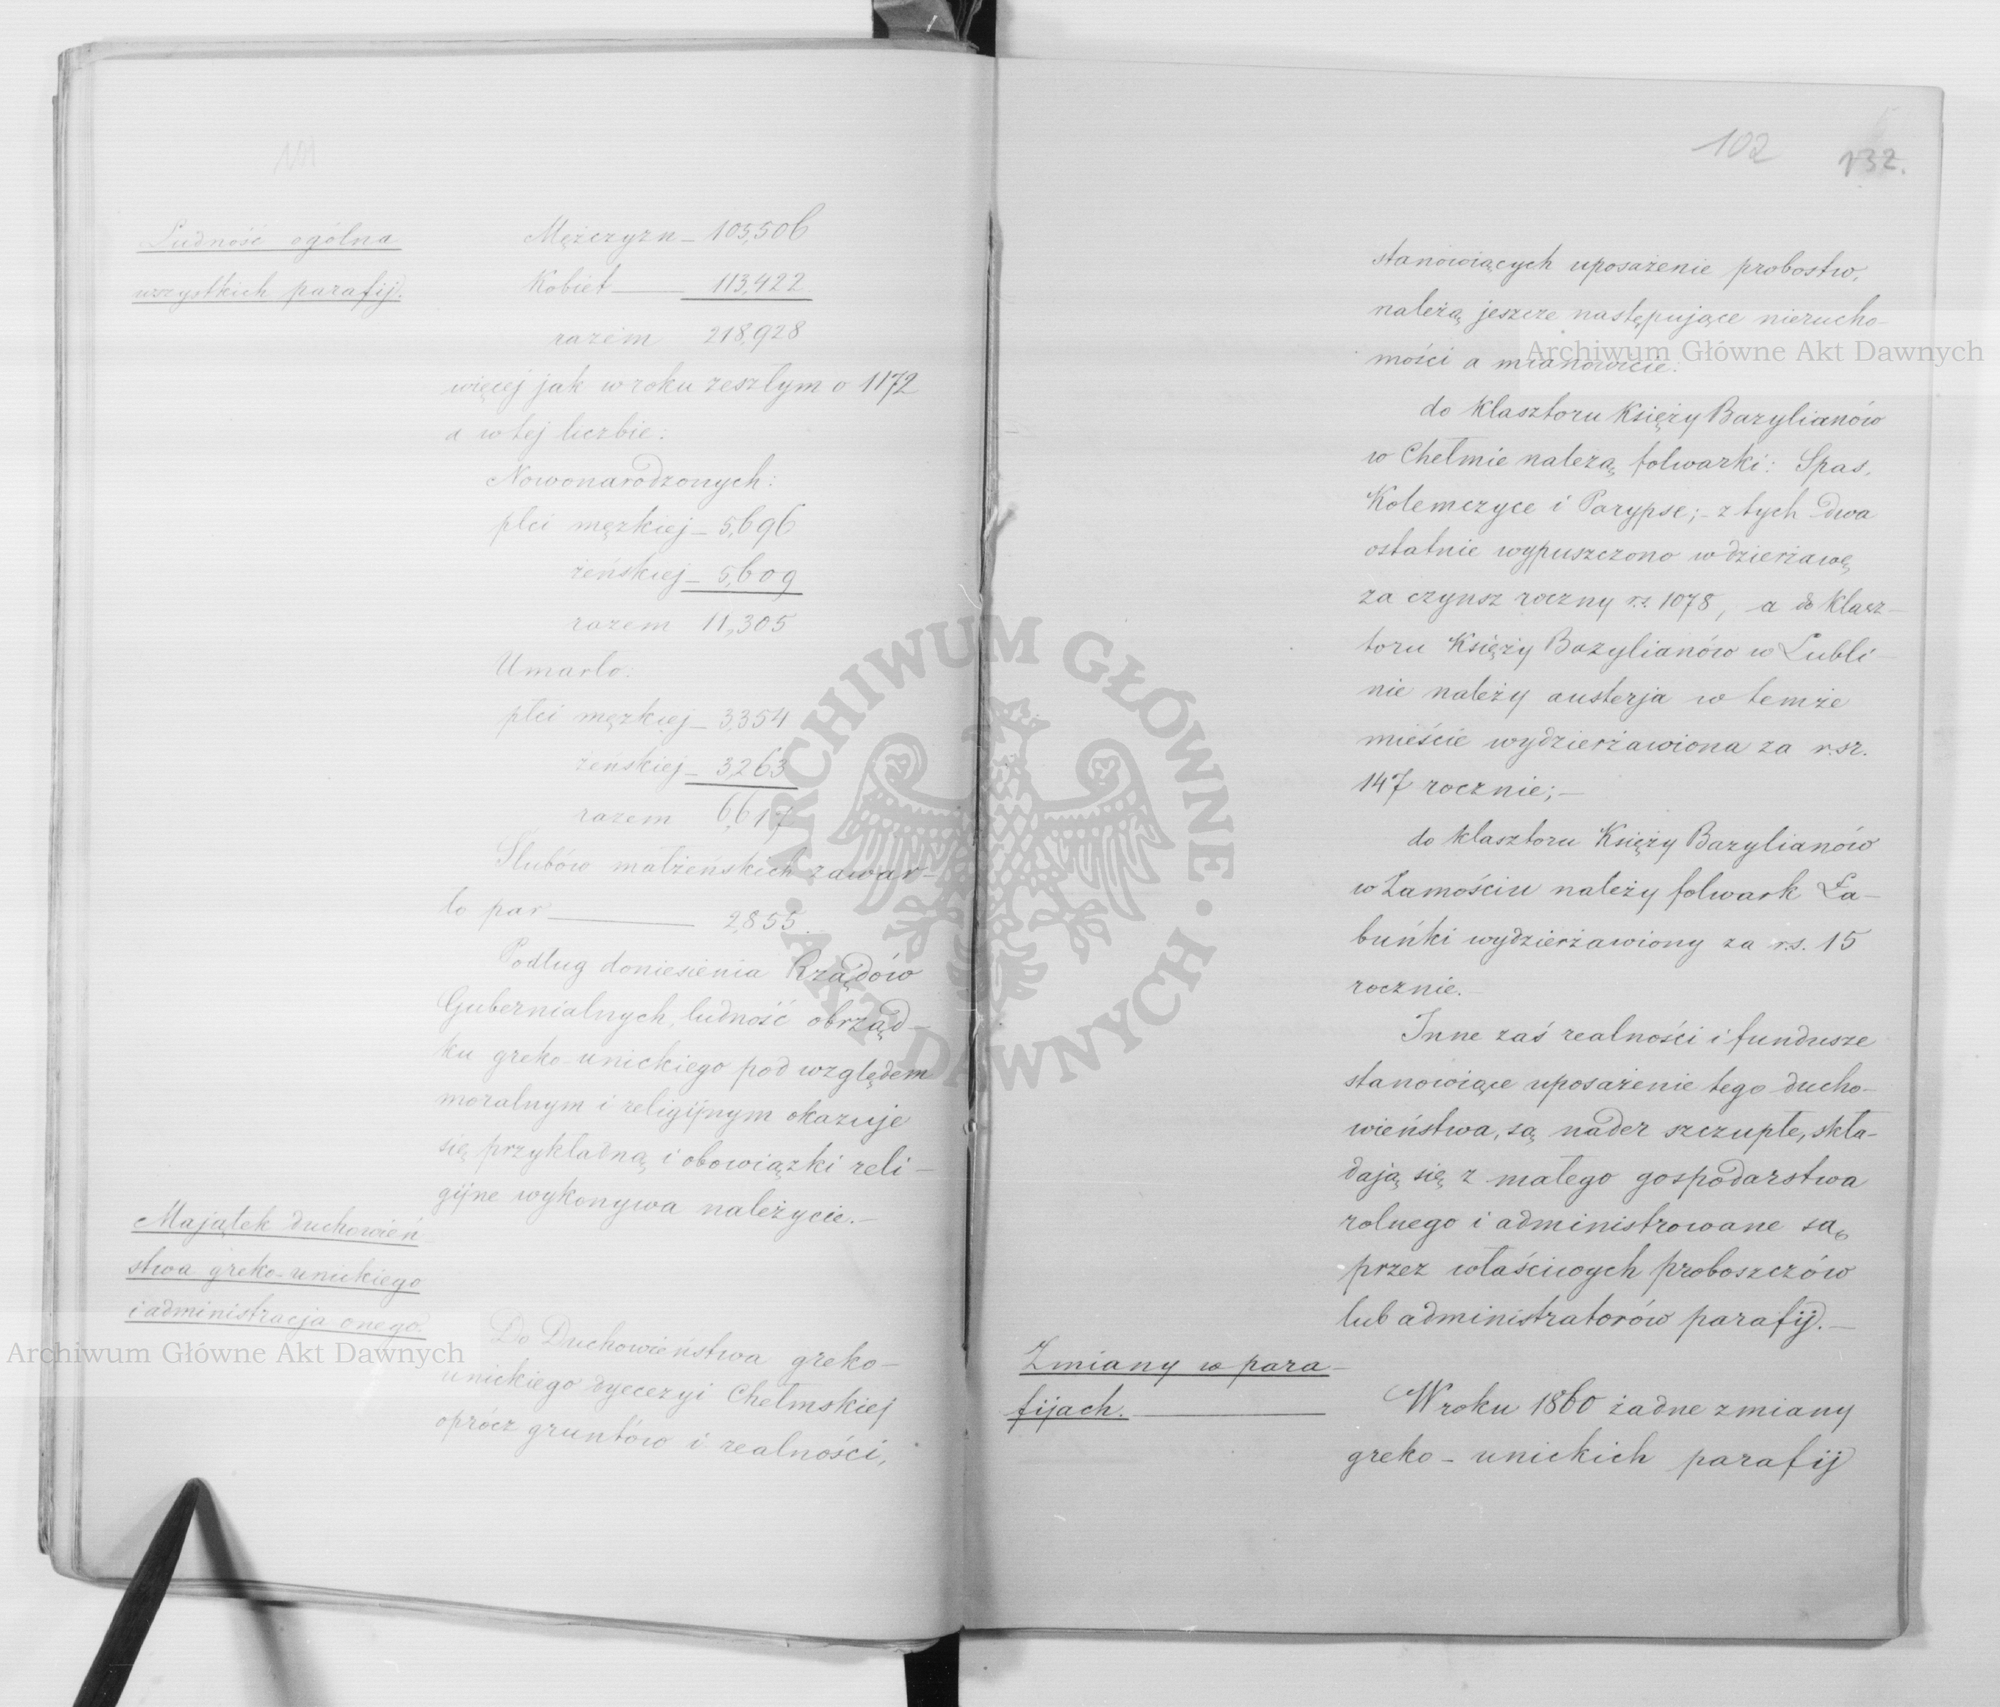 101
Ludność ogólna
wszystkich parafij.
Mężczyzn – 105,506
Kobiet — 113,422
razem 218,928
więcej jak w roku zeszłym o 1172
a w tej liczbie:
Nowonarodzonych:
płci męzkiej – 5,696
żeńskiej – 5,609
razem 11,305
Umarło:
płci męzkiej – 3354
żeńskiej – 3,263
razem 6,617
Ślubów małżeńskich zawar-
to par — 2,855.
Podług doniesienia Rządów
Gubernialnych, ludność obrząd-
ku greko-unickiego pod względem
moralnym i religijnym okazuje
się przykładną i obowiązki reli-
gijne wykonywa należycie. –
Majątek duchowień
stwa greko-unickiego
i administracja onego.
Do Duchowieństwa greko-
unickiego dyecezyi Chełmskiej
oprócz gruntów i realności,
102
132.
stanowiących uposażenie probostw,
należą jeszcze następujące nierucho-
mości a mianowicie:
do Klasztoru Księży Bazylianów
w Chełmie należą folwarki: Spas,
Kołemczyce i Parypse; – z tych dwa
ostatnie wypuszczono w dzierżawę
za czynsz roczny r.s. 1078, a do Klasz-
toru Księży Bazylianów w Lubli-
nie należy austerja w temże
mieście wydzierżawiona za r.sr.
147 rocznie; –
do klasztoru Księży Bazylianów
w Zamościu należy folwark Ła-
buńki wydzierżawiony za r.s. 15
rocznie. –
Inne zaś realności i fundusze
stanowiące uposażenie tego ducho-
wieństwa, są nader szczupłe, skła-
dają się z małego gospodarstwa
rolnego i administrowane są
przez właściwych proboszczów
lub administratorów parafij. –
Zmiany w para-
fijach. —
W roku 1860 żadne zmiany
greko-unickich parafij
Archiwum Główne Akt Dawnych
Archiwum Główne Akt Dawnych
ARCHIWUM GŁÓWNE · AKT DAWNYCH ·